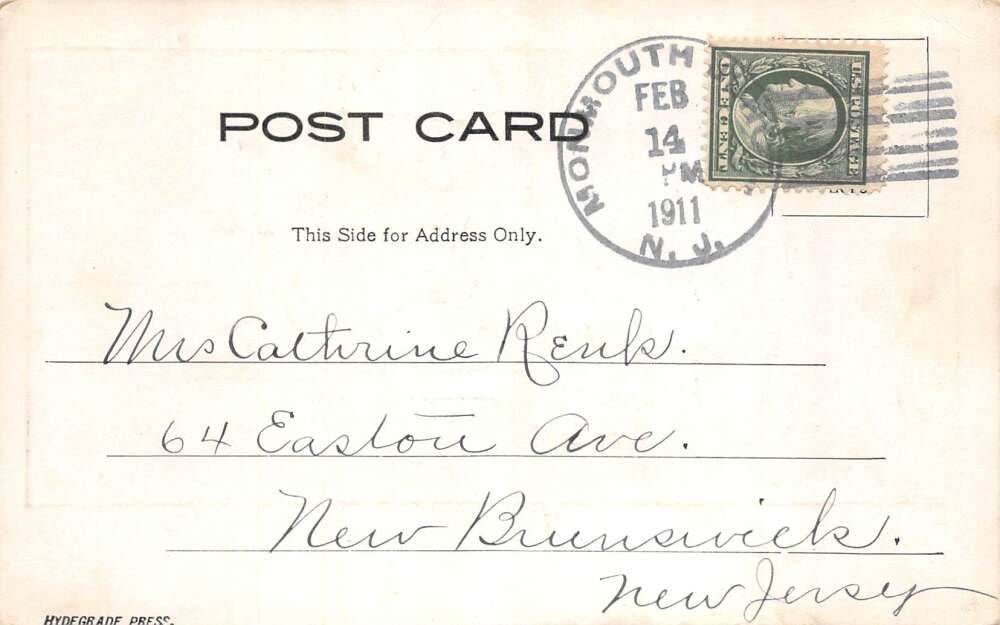 POST CARD
MONMOUTH
FEB
14
PM
1911
N. J.
U.S. POSTAGE
ONE CENT
This Side for Address Only.
Mrs Cathrine Renk.
64 Easton Ave.
New Brunswick.
New Jersey
HYDEGRADE PRESS.